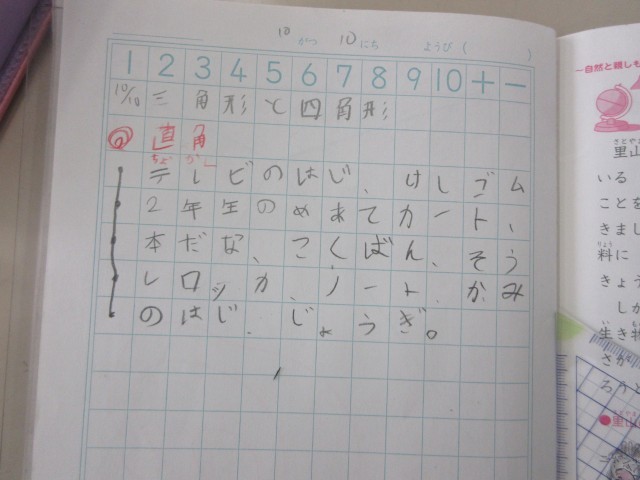 10がつ 10にち ようび( )
1 2 3 4 5 6 7 8 9 10 + −
10/10 三角形と四角形
め 直角
ちょ かく
テレビのはじ、けしゴム
2年生のめあてカート、
本だな、こくばん、そう
レロッカ、ノート、かみ
のはじ、じょうぎ。
自然と親しも
さとやま
里山
いる
ことを
きまし
りょう
料に
きょう
しか
い もの
生き物
さか
ろうと
●里山